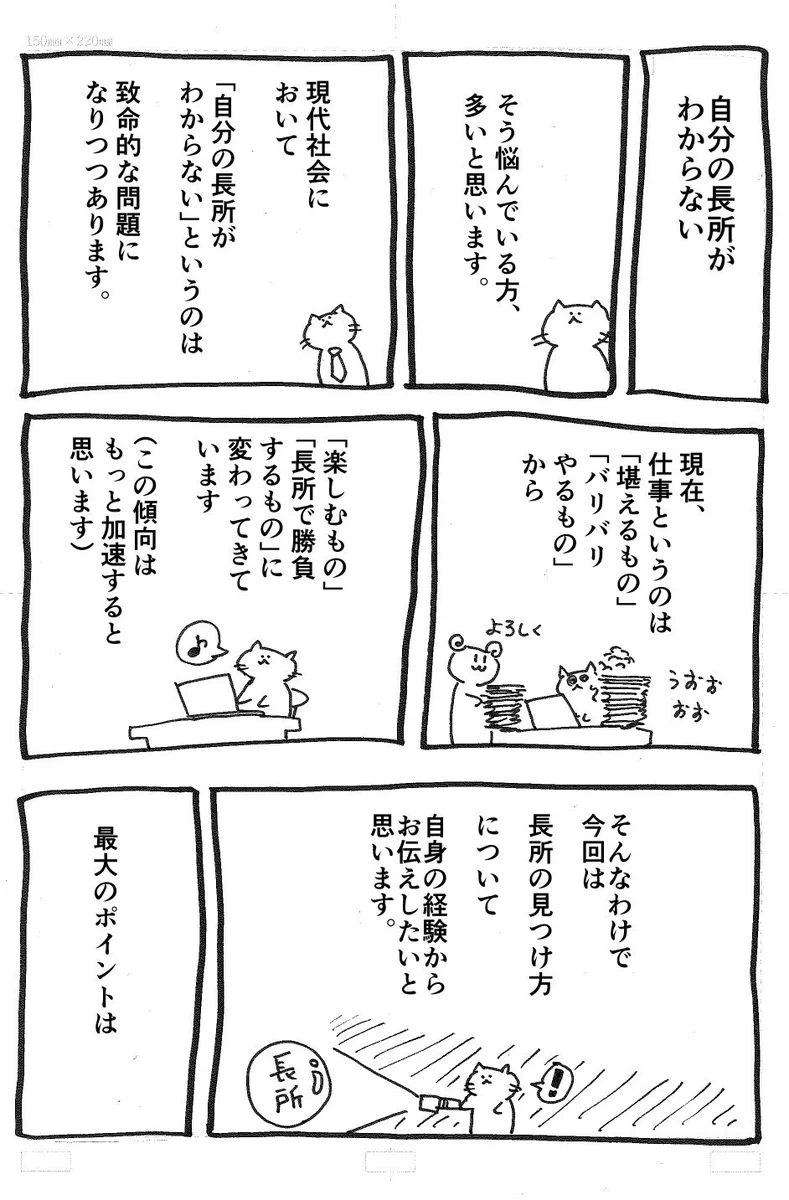 150mm×220mm
自分の長所が
わからない
そう悩んでいる方、
多いと思います。
現代社会に
おいて
「自分の長所が
わからない」というのは
致命的な問題に
なりつつあります。
現在、
仕事というのは
「堪えるもの」
「バリバリ
やるもの」
から
よろしく
うおお
おお
「楽しむもの」
「長所で勝負
するもの」に
変わってきて
います
(この傾向は
もっと加速すると
思います)
そんなわけで
今回は
長所の見つけ方
について
自身の経験から
お伝えしたいと
思います。
!
長所
最大のポイントは